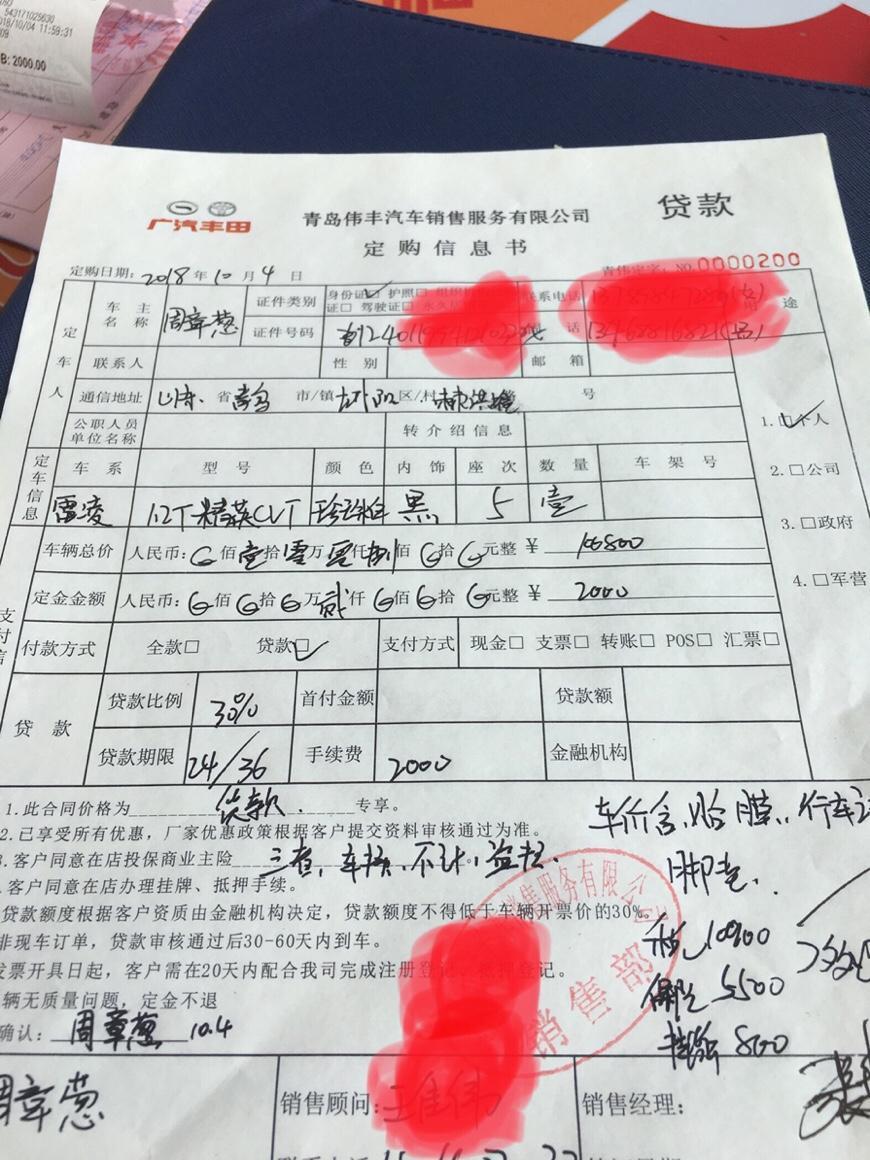 543171025630
2018/10/04 11:59:31
B: 2000.00
广汽丰田
青岛伟丰汽车销售服务有限公司
贷款
定购信息书
定购日期：2018年10月4日
NO.0000200
定车人
车主名称 周章葱
证件类别 身份证☑ 护照□
证□ 驾驶证□
联系电话
用途
证件号码
话
联系人
性别
邮箱
通信地址 山东省青岛市/镇城阳区/村
号
公职人员单位名称
转介绍信息
1.☑个人
2.□公司
3.□政府
4.□军营
定车信息
车系 型号 颜色 内饰 座次 数量 车架号
雷凌 1.2T精英CVT 珍珠白 黑 5 壹
车辆总价 人民币：佰壹拾零万零仟捌佰拾元整 ¥ 100800
定金金额 人民币：佰拾万贰仟佰拾元整 ¥ 2000
付款方式 全款□ 贷款☑ 支付方式 现金□ 支票□ 转账□ POS□ 汇票□
贷款
贷款比例 30% 首付金额 贷款额
贷款期限 24/36 手续费 2000 金融机构
1.此合同价格为贷款专享。
2.已享受所有优惠，厂家优惠政策根据客户提交资料审核通过为准。
3.客户同意在店投保商业主险 三者，车损，不计，盗抢
.客户同意在店办理挂牌、抵押手续。
贷款额度根据客户资质由金融机构决定，贷款额度不得低于车辆开票价的30%。
非现车订单，贷款审核通过后30-60天内到车。
发票开具日起，客户需在20天内配合我司完成注册登记、抵押登记。
辆无质量问题，定金不退
确认：周章葱 10.4
车价含，贴膜，行车记
脚垫
10900
保险 5500
挂牌 800
销售服务有限公司
销售部
周章葱
销售顾问：
销售经理：